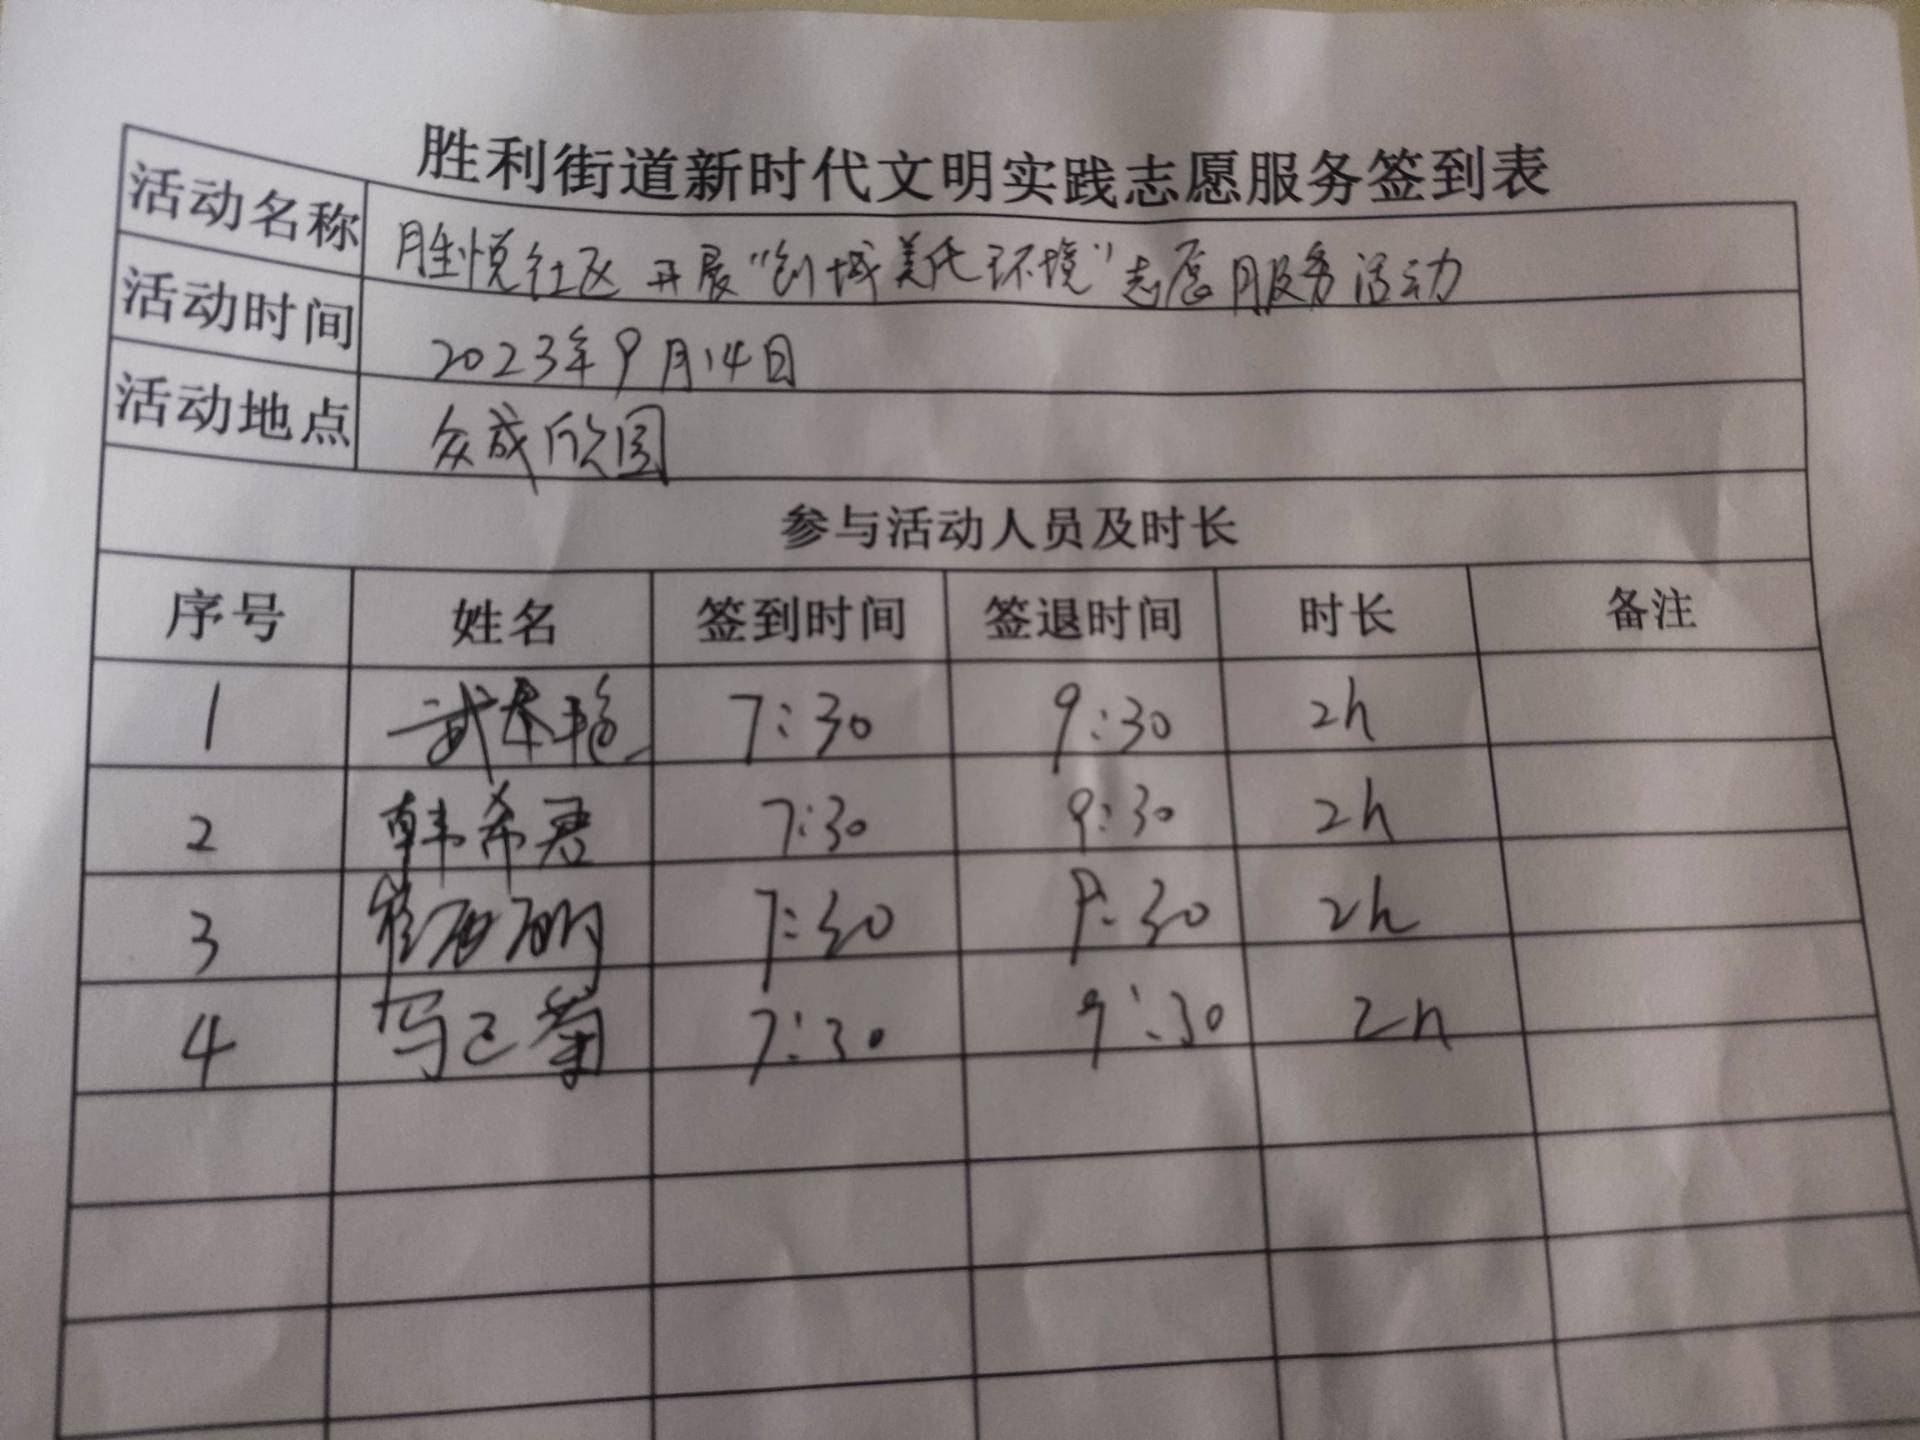 胜利街道新时代文明实践志愿服务签到表
活动名称 胜悦社区开展“创城美化环境”志愿服务活动
活动时间 2023年9月14日
活动地点 众成欣园
参与活动人员及时长
序号 姓名 签到时间 签退时间 时长 备注
1 武 7:30 9:30 2h
2 韩希君 7:30 9:30 2h
3 7:30 9:30 2h
4 菊 7:30 9:30 2h